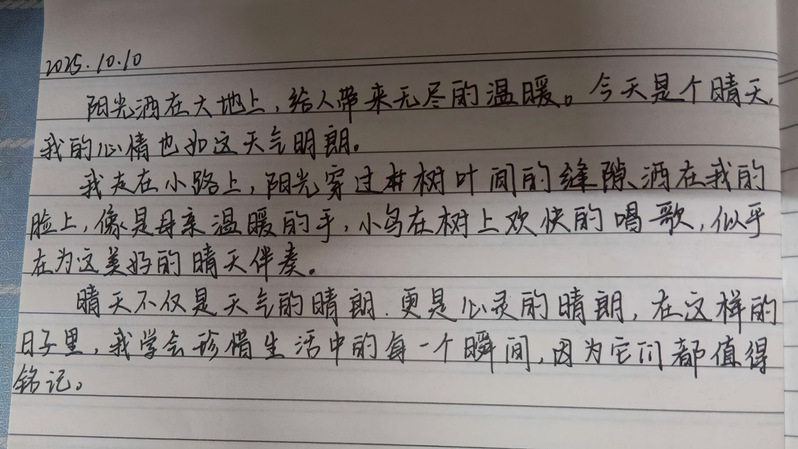 2025.10.10
阳光洒在大地上，给人带来无尽的温暖。今天是个晴天，
我的心情也如这天气明朗。
我走在小路上，阳光穿过树叶间的缝隙、洒在我的
脸上，像是母亲温暖的手，小鸟在树上欢快的唱歌，似乎
在为这美好的晴天伴奏。
晴天不仅是天气的晴朗．更是心灵的晴朗，在这样的
日子里，我学会珍惜生活中的每一个瞬间，因为它们都值得
铭记。